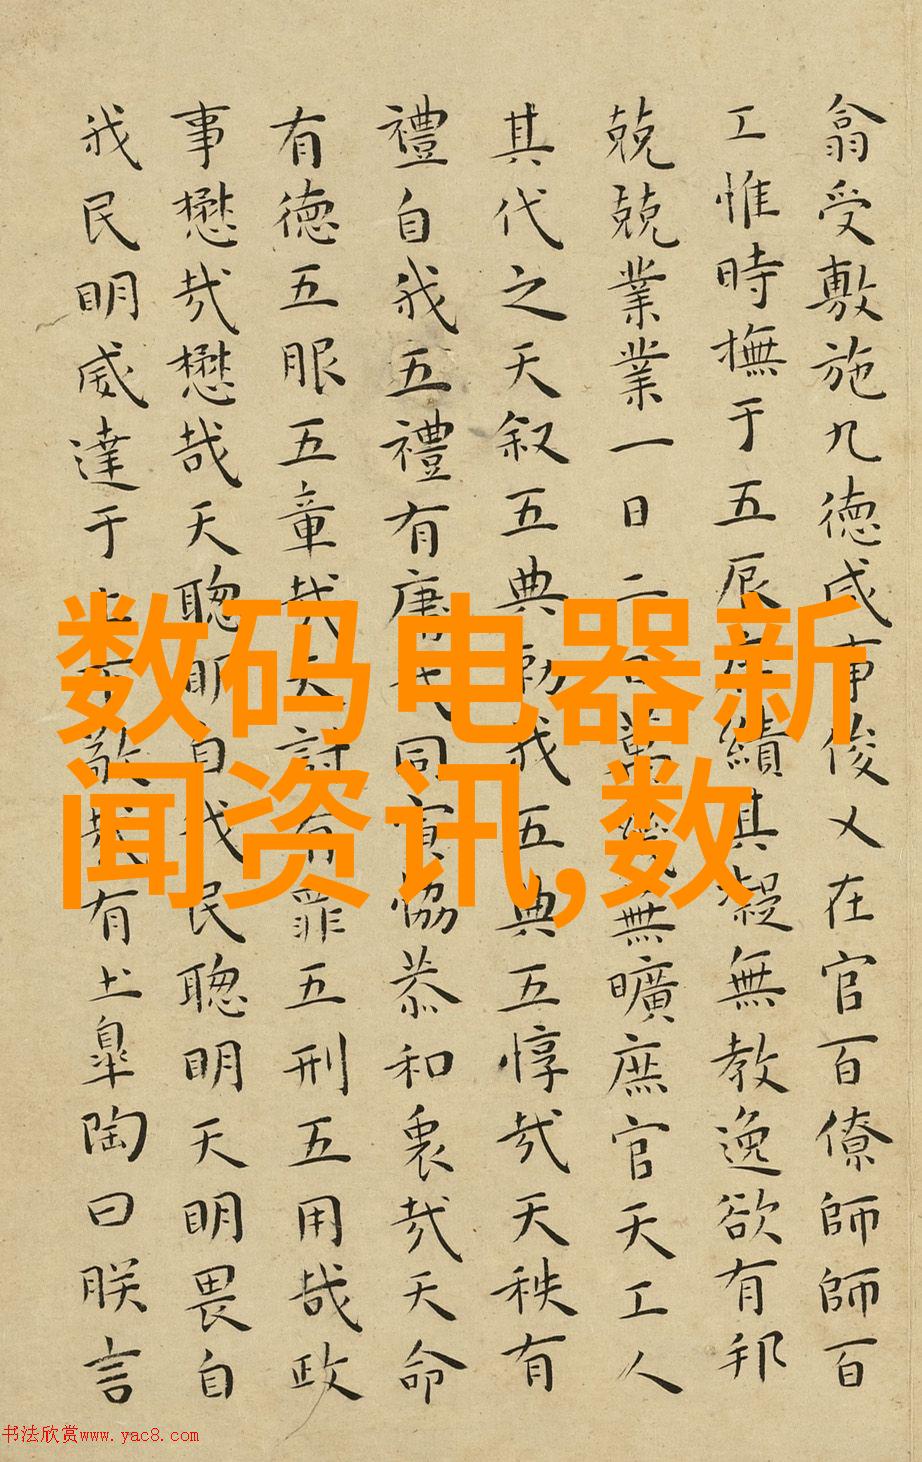 翕受敷施九德咸事俊乂在官百僚師師百
工惟時撫于五辰庶績其凝無教逸欲有邦
兢兢業業一日二日萬幾無曠庶官天工人
其代之天叙五典勑我五典五惇哉天秩有
禮自我五禮有庸哉同寅恊恭和衷哉天命
有德五服五章哉天討有罪五刑五用哉政
事懋哉懋哉天聰明自我民聰明天明畏自
我民明威達于上下敬哉有土皋陶曰朕言
数码电器新
闻资讯,数
书法欣赏www.yac8.com